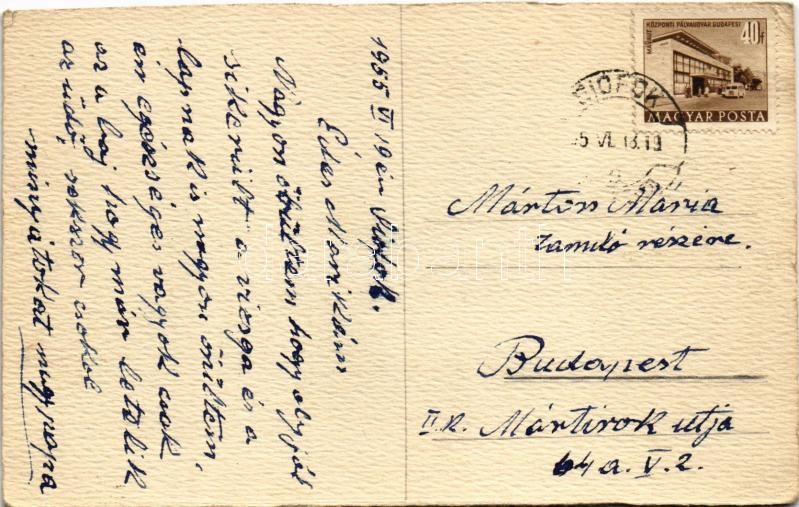 1955 VI 19én Siófok.
Édes Marikám
Nagyon örültem hogy oly jól
sikerült a vizsga és a
lapnak is nagyon örültem,
én egészséges vagyok csak
az a baj hogy már letelik
az üdő, sokszor csokol
mindnyátokat nagypapa
MÁVAUT KÖZPONTI PÁLYAUDVAR BUDAPEST
40f
MAGYAR POSTA
SIÓFOK
Márton Maria
tanuló részére.
Budapest
II. k. Mártirok utja
64a. V. 2.